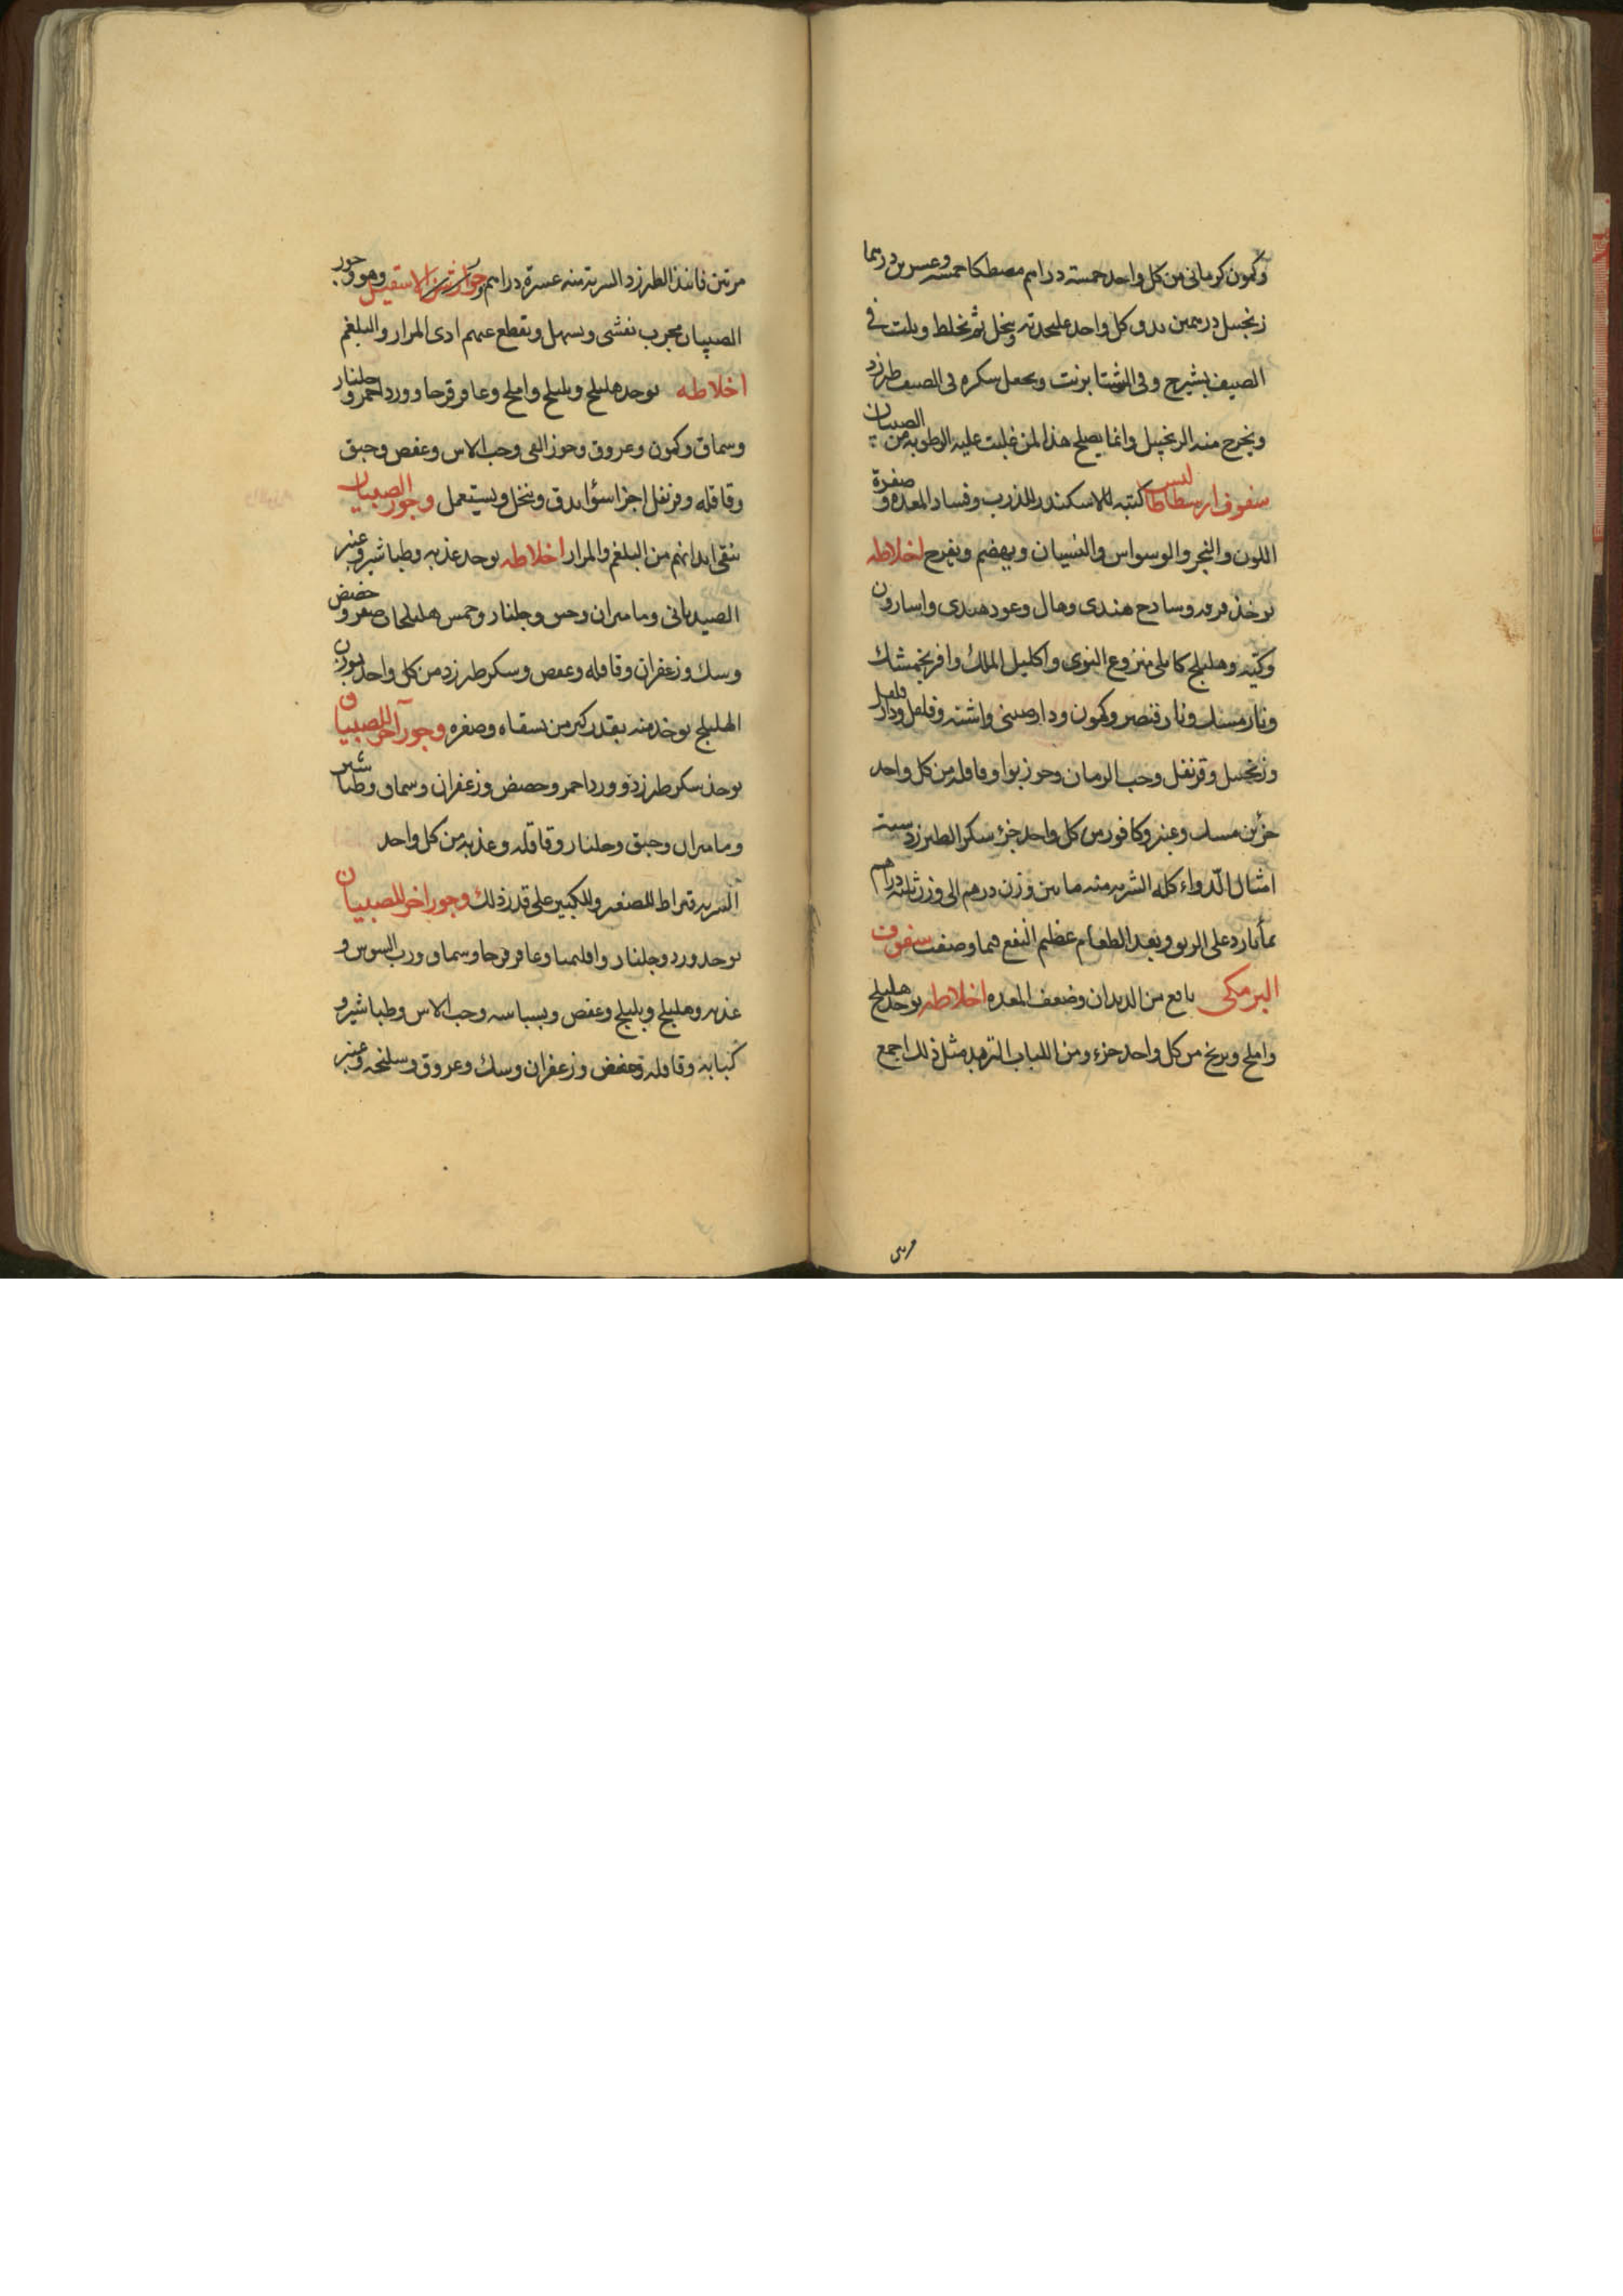 وكمون كرماني من كل واحد خمسة دراهم مصطكا خمسه وعسرين درهما
زنجبيل درهمين يدق كل واحد عليحدته وينخل ثم يخلط ويلت في
الصيف بشيرج وفي الشتا بزيت ويجعل سكره في الصيف طبرزد
ويخرج منه الزنجبيل وانما يصلح هذا لمن غلبت عليه الرطوبه من الصبيان
سفوف ارسطاطاليس كتبه للاسكندر للذرب وفساد المعده وصفرة
اللون والبخر والوسواس والنسيان ويهضم ويفرح اخلاطه
يوخذ قرفه وسادج هندي وهال وعود هندي واسارون
وهليلج كابلي منزوع النوى واكليل الملك وافرنجمشك
ونارمسك ونارقيصر وكمون ودارصيني واشنه وفلفل ودارفلفل
وزنجبيل وقرنفل وحب الرمان وجوز بوا وقاقله من كل واحد
جزئين مسك وعنبر وكافور من كل واحد جزء سكر الطبرزد ستة
امثال الدواء كله الشربه منه ما بين وزن درهم الى وزن ثلثه دراهم
بمأ بارد على الريق وبعد الطعام عظيم النفع فيما وصفت سفوف
البرمكي نافع من الديدان وضعف المعده اخلاطه يوخذ هليلج
واملج وبرنج من كل واحد جزء ومن اللباب التربد مثل ذلك اجمع
مرتين فانيذ الطبرزد الشربة منه عشرة دراهم وجوارشن الاسقيل وهو وجور
الصبيان مجرب يفشي ويسهل ويقطع عنهم اذى المرار والبلغم
اخلاطه يوخذ هليلج وبليلج واملج وعاقرقرحا وورد احمر وجلنار
وسماق وكمون وعروق وجوز القي وحب الاس وعفص وحبق
وقاقله وقرنفل اجزا سوأ يدق وينخل ويستعمل وجور الصبيان
ينقى ابدانهم من البلغم والمرار اخلاطه يوخذ عذبه وطباشير وعنبر
وماميران وجلنار وخمس هليلجات صفر وحضض
وسك وزعفران وقاقله وعفص وسكر طبرزد من كل واحد بوزن
الهليلج يوخذ منه بقدر كبر من يسقاه وصغره وجور آخر للصبيان
يوخذ سكر طبرزد وورد احمر وحضض وزعفران وسماق وطباشير
وماميران وحبق وجلنار وقاقله وعذبه من كل واحد
الشربه قيراط للصغير وللكبير على قدر ذلك وجور اخر للصبيان
يوخذ ورد وجلنار واقليميا وعاقرقرحا وسماق ورب السوس و
عذبه وهليلج وبليلج وعفص وبسباسه وحب الاس وطباشير و
كبابه وقاقله وحضض وزعفران وسك وعروق وسليخه وعنبر
مرتين